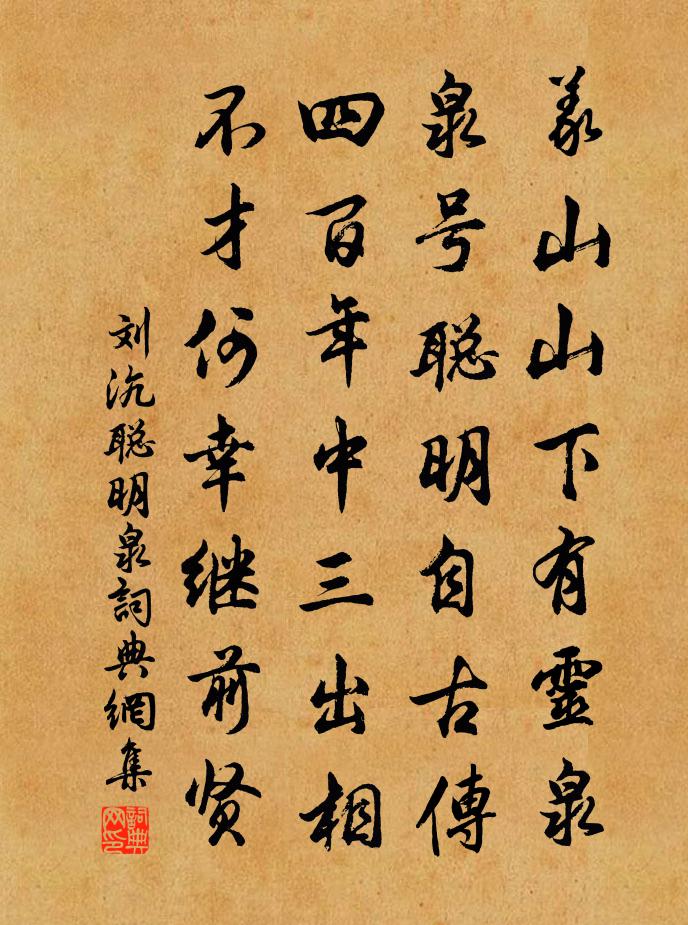 義山山下有靈泉
泉号聪明自古傳
四百年中三出相
不才何幸继前贤
刘沆聪明泉詞典網集
詞典网印